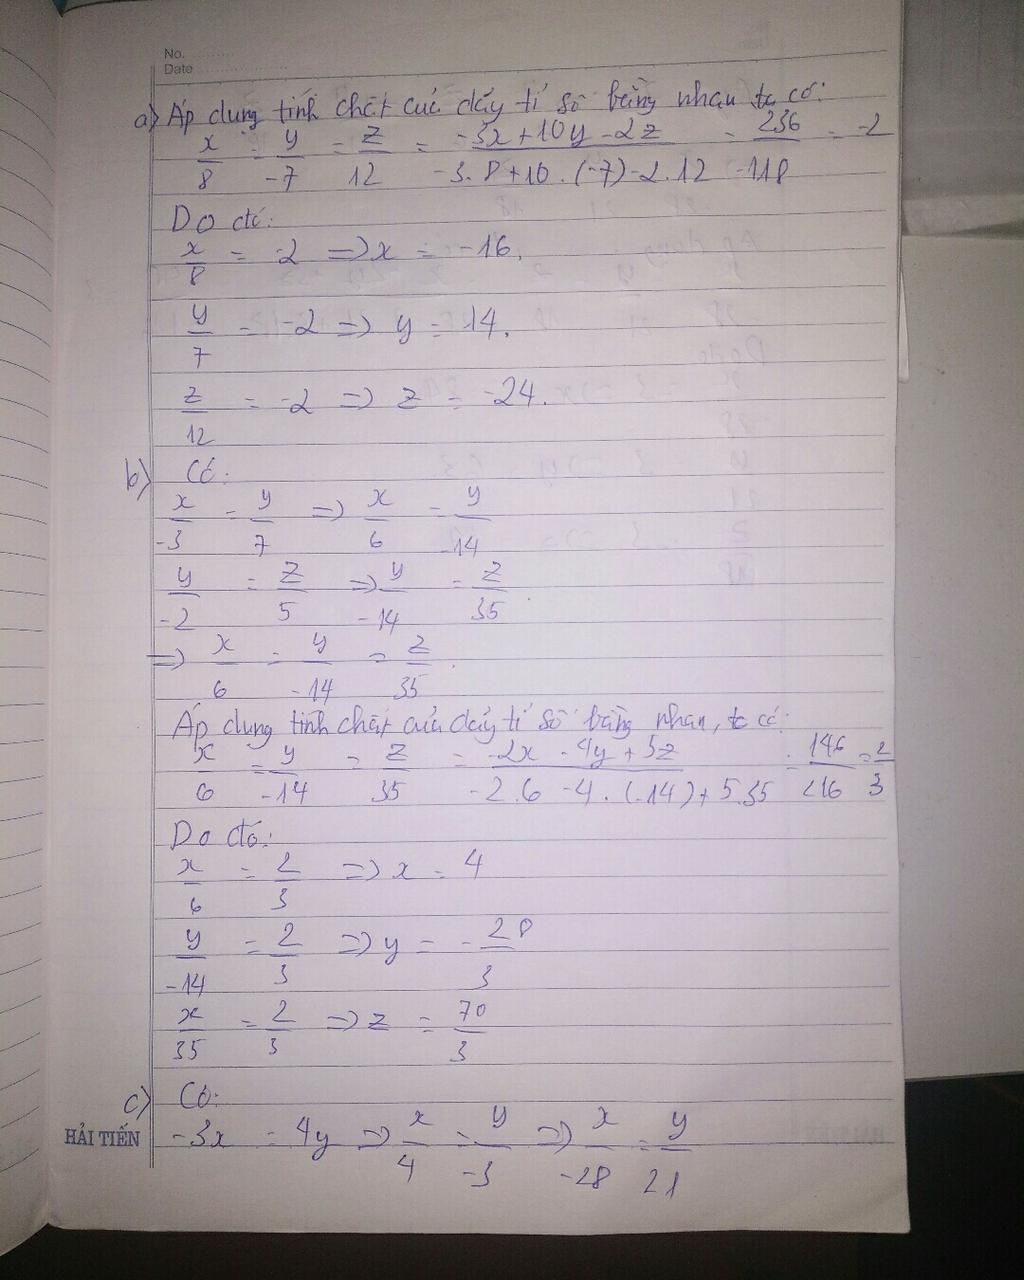 No. ..........
Date ....................
a) Áp dụng tính chất của dãy tỉ số bằng nhau ta có:
x/8 = y/-7 = z/12 = (-3x+10y-2z)/(-3.8+10.(-7)-2.12) = 236/-118 = -2
Do đó:
x/8 = -2 => x = -16.
y/7 = -2 => y = 14.
z/12 = -2 => z = -24.
b) Có:
x/-3 = y/7 => x/6 = y/-14
y/-2 = z/5 => y/-14 = z/35
=> x/6 = y/-14 = z/35.
Áp dụng tính chất của dãy tỉ số bằng nhau, ta có:
x/6 = y/-14 = z/35 = (-2x-4y+5z)/(-2.6-4.(-14)+5.35) = 146/216 = 2/3
Do đó:
x/6 = 2/3 => x = 4
y/-14 = 2/3 => y = -28/3
x/35 = 2/3 => z = 70/3
c) Có:
HẢI TIẾN
-3x = 4y => x/4 = y/-3 => x/-28 = y/21